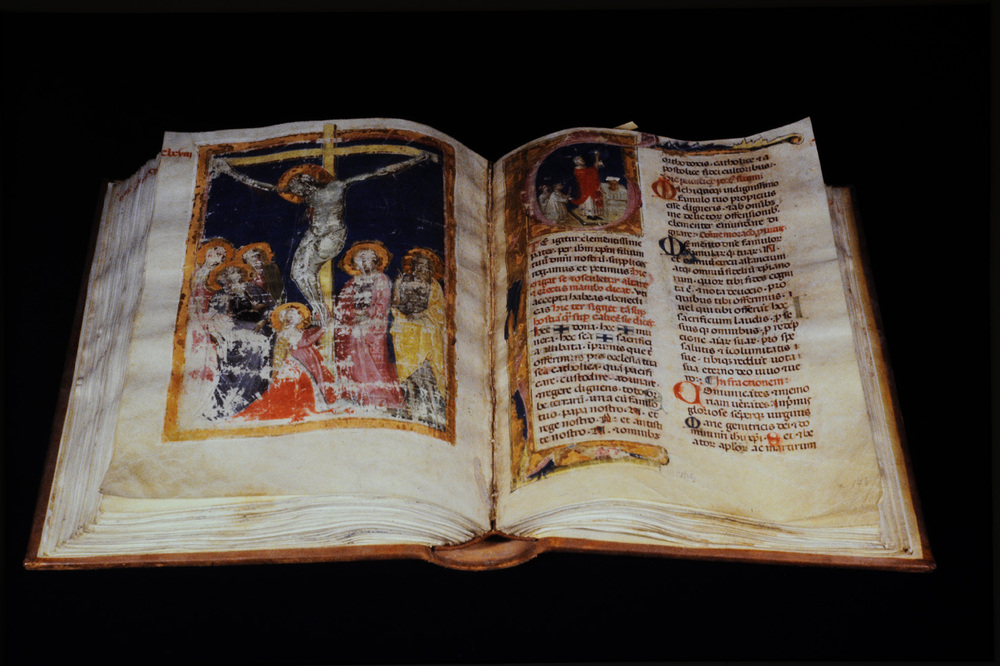 E igitur clementissime
pater per ihm xpm filium
tuum dnm nostrū supplices
rogamus et petimus hic
altare
accepta habeas ⁊ benedi
cas hic ter signet
hec ✠ dona hec ✠ mu
nera hec scā ✠ sacrifici
a illibata in primis que t
offerimus pro ecclesia tua
sca catholica quā pacifi
care custodire adunare
⁊ regere digneris toto or
be terrarū una cū famulo
tuo papa nostro N et
rege nostro N et antisti
te nostro N ⁊ omnibus
orthodoxis catholice ⁊ a
postolice fidei cultoribus
michi quoqȝ indignissimo
famulo tuo propicius
esse digneris ⁊ ab omibȝ
me delictor offensionibȝ
clementer emundare di
gnare
Memento dne famulor
famularūqȝ tuar N
et omniū circū astancium
atqȝ omniū fideliū xpiano
rum quor tibi fides cogni
ta ē ⁊ nota deuocio pro
quibus tibi offerimus ł
uel qui tibi offerūt hoc
sacrificium laudis p se
suisqȝ omnibus p redēp
tione aīar suar pro spe
salutis ⁊ incolumitatis
sue tibiqȝ reddūt uota
sua eterno deo uiuo uero
Infractionem
Comunicātes ⁊ memo
riam uenerātes in primis
gloriose semp uirginis
Marie genitricis dei ⁊ do
mini nri ihu xpi Set ⁊ be
ator aplor ac martirum